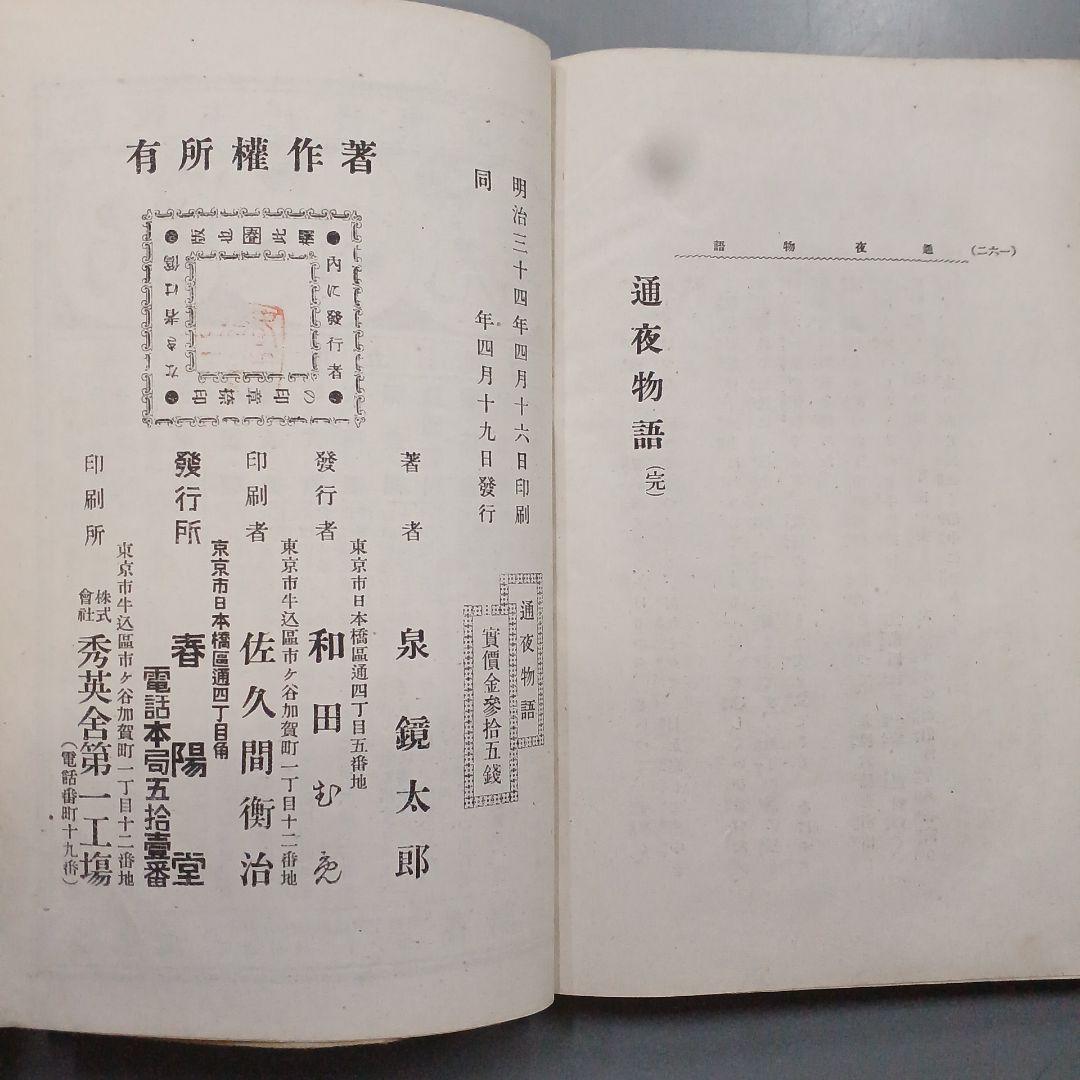 通夜物語
(一六二)
通夜物語(完)
明治三十四年四月十六日印刷
同年四月十九日發行
通夜物語
實價金參拾五錢
著作權所有
內に發行者
の印章捺印
なき者は僞
著者 泉鏡太郎
東京市日本橋區通四丁目五番地
發行者 和田むめ
東京市牛込區市ケ谷加賀町一丁目十二番地
印刷者 佐久間衡治
京京市日本橋區通四丁目角
發行所 春陽堂
電話本局五拾壹番
東京市牛込區市ケ谷加賀町一丁目十二番地
印刷所 株式會社秀英舍第一工塲
(電話番町十九番)